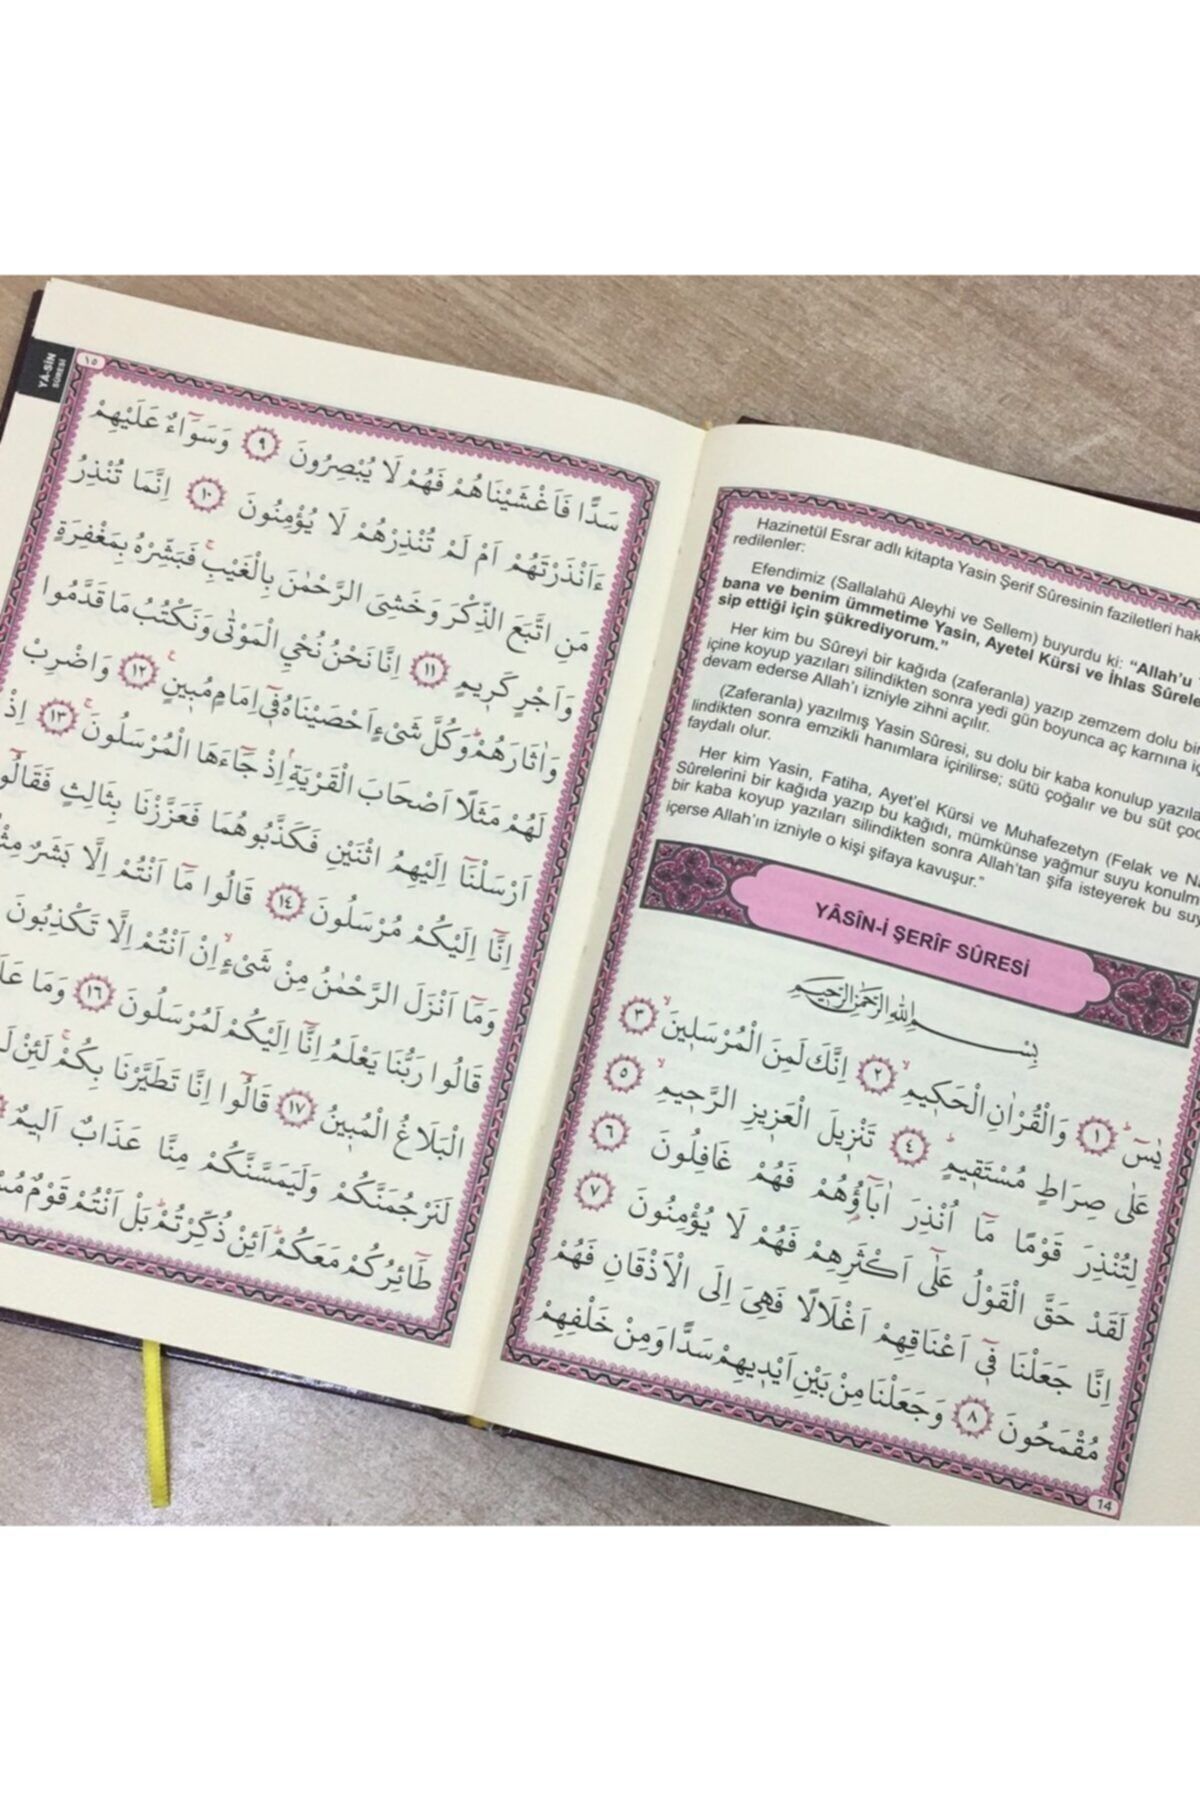 Hazinetül Esrar adlı kitapta Yasin Şerif Sûresinin faziletleri hak
redilenler:
Efendimiz (Sallalahü Aleyhi ve Sellem) buyurdu ki: "Allah'u
bana ve benim ümmetime Yasin, Ayetel Kürsi ve İhlas Sûrele
sip ettiği için şükrediyorum."
Her kim bu Sûreyi bir kağıda (zaferanla) yazıp zemzem dolu bir
içine koyup yazıları silindikten sonra yedi gün boyunca aç karnına iç
devam ederse Allah'ı izniyle zihni açılır.
(Zaferanla) yazılmış Yasin Sûresi, su dolu bir kaba konulup yazıla
lindikten sonra emzikli hanımlara içirilirse; sütü çoğalır ve bu süt çoc
faydalı olur.
Her kim Yasin, Fatiha, Ayet'el Kürsi ve Muhafezetyn (Felak ve Na
Sûrelerini bir kağıda yazıp bu kağıdı, mümkünse yağmur suyu konulm
bir kaba koyup yazıları silindikten sonra Allah'tan şifa isteyerek bu suy
içerse Allah'ın izniyle o kişi şifaya kavuşur."
YÂSÎN-İ ŞERÎF SÛRESİ
بِسْمِ اللهِ الرَّحْمٰنِ الرَّحِيمِ
يٰسٓ ۚ ﴿١﴾ وَالْقُرْاٰنِ الْحَكِيمِۙ ﴿٢﴾ اِنَّكَ لَمِنَ الْمُرْسَلِينَۙ ﴿٣﴾
عَلٰى صِرَاطٍ مُسْتَقِيمٍۜ ﴿٤﴾ تَنْزِيلَ الْعَزِيزِ الرَّحِيمِۙ ﴿٥﴾
لِتُنْذِرَ قَوْمًا مَٓا اُنْذِرَ اٰبَٓاؤُهُمْ فَهُمْ غَافِلُونَ ﴿٦﴾
لَقَدْ حَقَّ الْقَوْلُ عَلٰٓى اَكْثَرِهِمْ فَهُمْ لَا يُؤْمِنُونَ ﴿٧﴾
اِنَّا جَعَلْنَا فِٓي اَعْنَاقِهِمْ اَغْلَالًا فَهِيَ اِلَى الْاَذْقَانِ فَهُمْ
مُقْمَحُونَ ﴿٨﴾ وَجَعَلْنَا مِنْ بَيْنِ اَيْدِيهِمْ سَدًّا وَمِنْ خَلْفِهِمْ
14
YÂ-SÎN
SÛRESİ
١٥
سَدًّا فَاَغْشَيْنَاهُمْ فَهُمْ لَا يُبْصِرُونَ ﴿٩﴾ وَسَوَٓاءٌ عَلَيْهِمْ
ءَاَنْذَرْتَهُمْ اَمْ لَمْ تُنْذِرْهُمْ لَا يُؤْمِنُونَ ﴿١٠﴾ اِنَّمَا تُنْذِرُ
مَنِ اتَّبَعَ الذِّكْرَ وَخَشِيَ الرَّحْمٰنَ بِالْغَيْبِۚ فَبَشِّرْهُ بِمَغْفِرَةٍ
وَاَجْرٍ كَرِيمٍ ﴿١١﴾ اِنَّا نَحْنُ نُحْيِ الْمَوْتٰى وَنَكْتُبُ مَا قَدَّمُوا
وَاٰثَارَهُمْۜ وَكُلَّ شَيْءٍ اَحْصَيْنَاهُ فِٓي اِمَامٍ مُبِينٍۚ ﴿١٢﴾ وَاضْرِبْ
لَهُمْ مَثَلًا اَصْحَابَ الْقَرْيَةِۢ اِذْ جَٓاءَهَا الْمُرْسَلُونَۚ ﴿١٣﴾ اِذْ
اَرْسَلْنَٓا اِلَيْهِمُ اثْنَيْنِ فَكَذَّبُوهُمَا فَعَزَّزْنَا بِثَالِثٍ فَقَالُٓوا
اِنَّٓا اِلَيْكُمْ مُرْسَلُونَ ﴿١٤﴾ قَالُوا مَٓا اَنْتُمْ اِلَّا بَشَرٌ
وَمَٓا اَنْزَلَ الرَّحْمٰنُ مِنْ شَيْءٍۙ اِنْ اَنْتُمْ اِلَّا تَكْذِبُونَ
قَالُوا رَبُّنَا يَعْلَمُ اِنَّٓا اِلَيْكُمْ لَمُرْسَلُونَ ﴿١٦﴾ وَمَا
الْبَلَاغُ الْمُبِينُ ﴿١٧﴾ قَالُٓوا اِنَّا تَطَيَّرْنَا بِكُمْۚ لَئِنْ
لَنَرْجُمَنَّكُمْ وَلَيَمَسَّنَّكُمْ مِنَّا عَذَابٌ اَلِيمٌ
طَٓائِرُكُمْ مَعَكُمْۜ اَئِنْ ذُكِّرْتُمْۜ بَلْ اَنْتُمْ قَوْمٌ